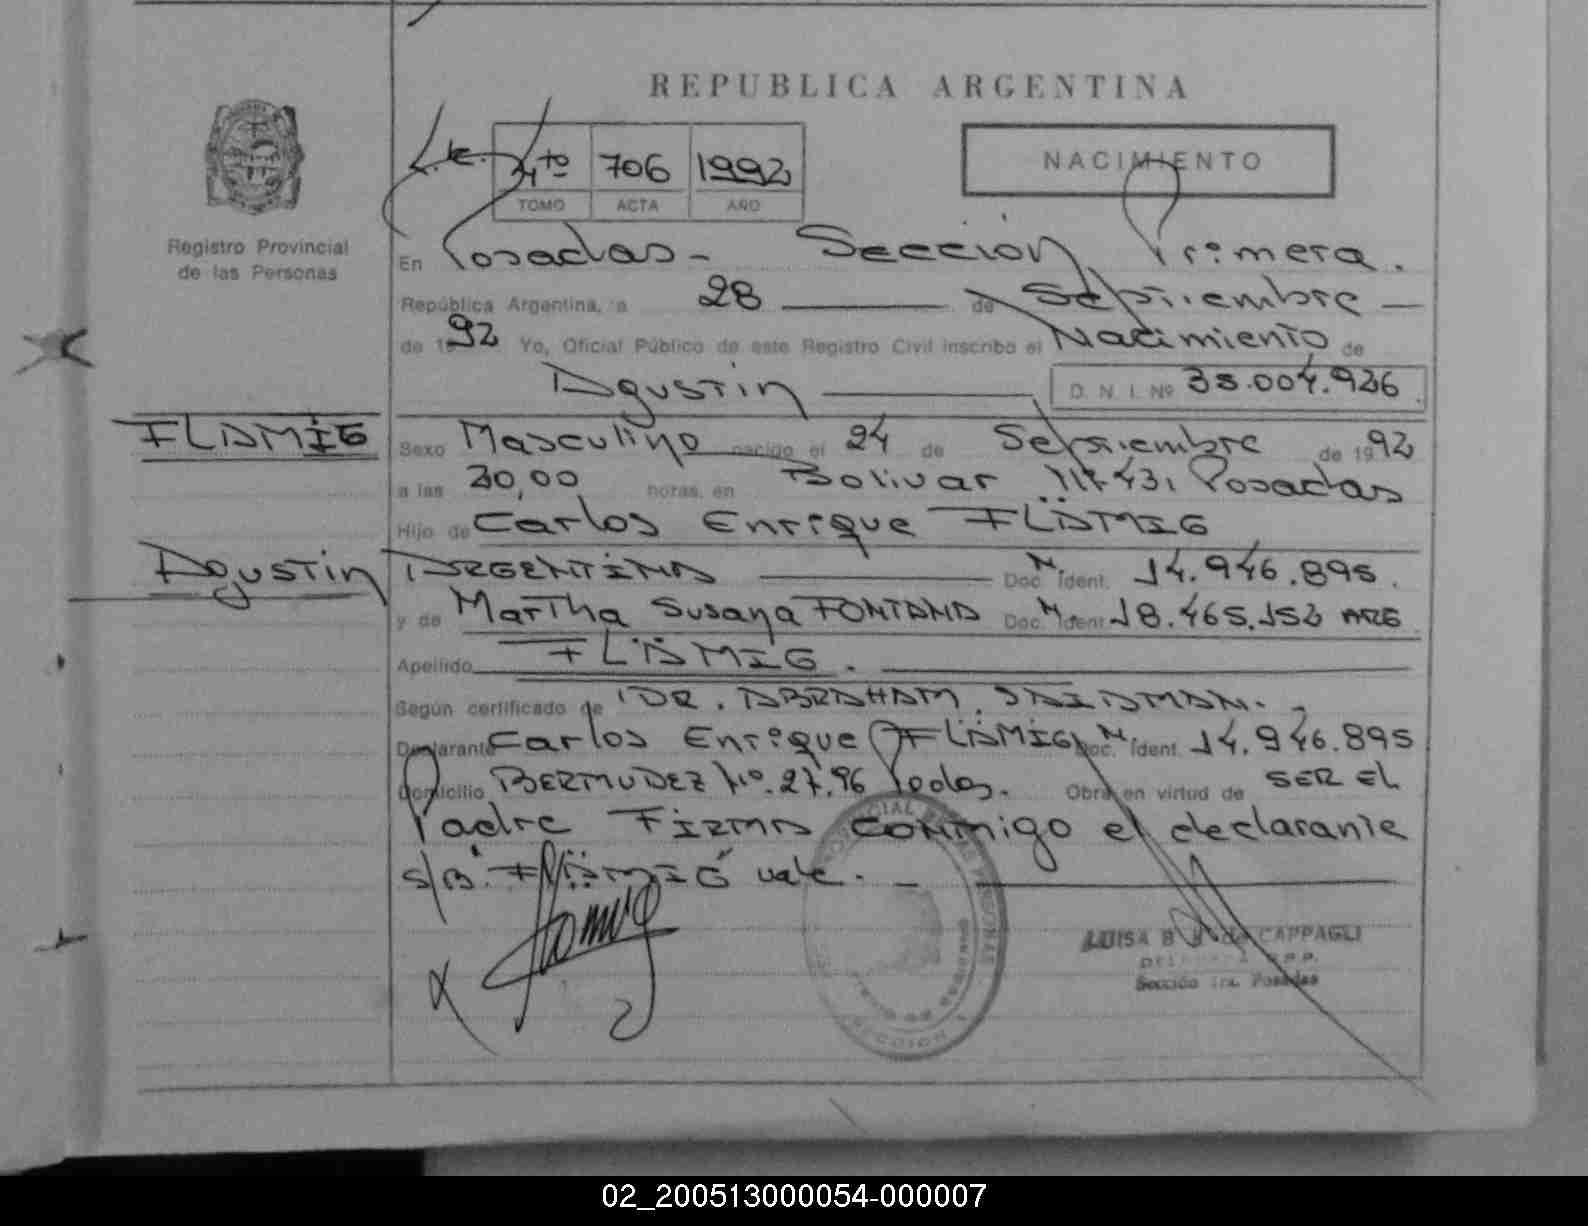 REPUBLICA ARGENTINA
4to 706 1992
TOMO ACTA AÑO
NACIMIENTO
Registro Provincial
de las Personas
En Posadas - Sección Primera.
República Argentina, a 28 de Septiembre
de 1992 Yo, Oficial Público de este Registro Civil inscribo el Nacimiento de
Agustin D. N. I. Nº
FLÄMIG
Sexo Masculino nacido el 24 de Septiembre de 1992
a las 20,00 horas, en Bolivar Posadas
Hijo de Carlos Enrique FLÄMIG
Agustin
ARGENTINA Doc. Ident. 14.946.895.
y de Martha Susana FONTANA Doc. Ident. 18.465.152 ARG
Apellido FLÄMIG.
Según certificado de DR. ABRAHAM SAIDMAN.
Declarante Carlos Enrique FLÄMIG Doc. Ident. 14.946.895
Domicilio BERMUDEZ Nº 27.96 Pdas. Obra en virtud de SER El
Padre FIRMA conmigo el declarante
s/B. FLÄMIG vale.
LUISA B de CAPPAGLI
Sección 1ra. Posadas
02_200513000054-000007